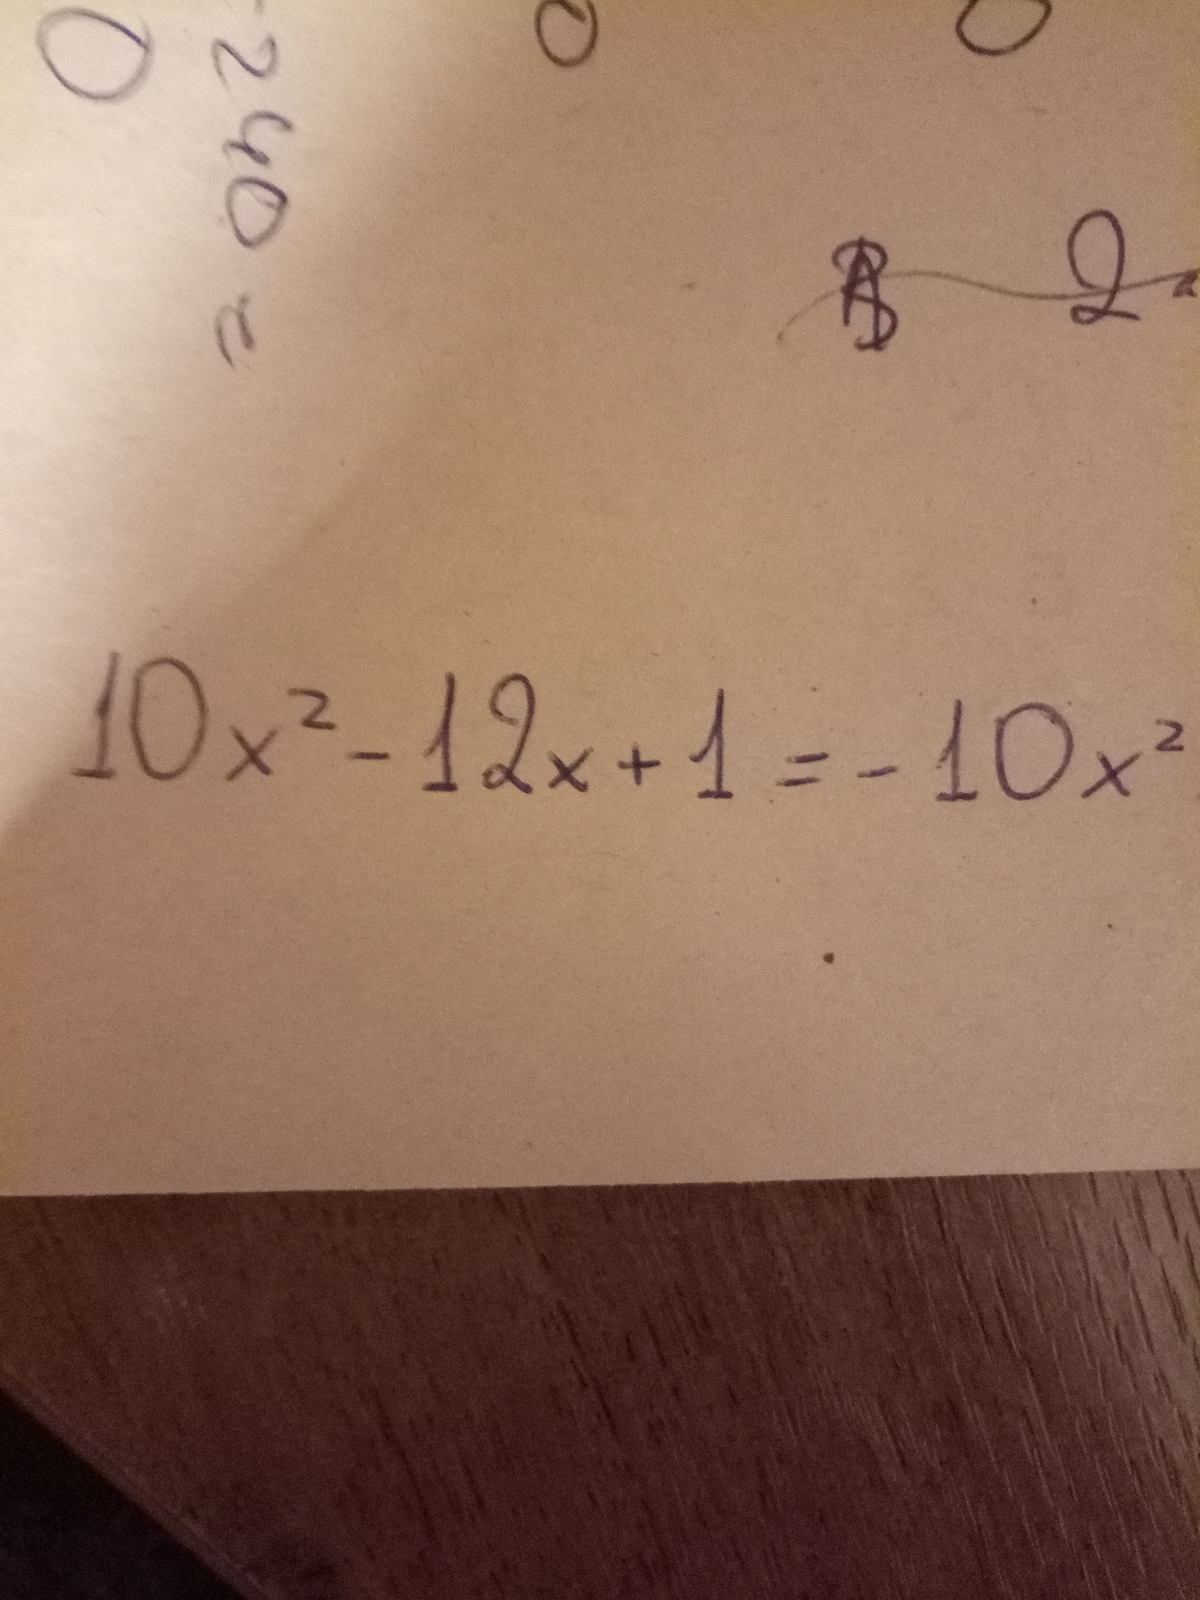 0
-240 =
0
0
2
10x² - 12x + 1 = - 10x²